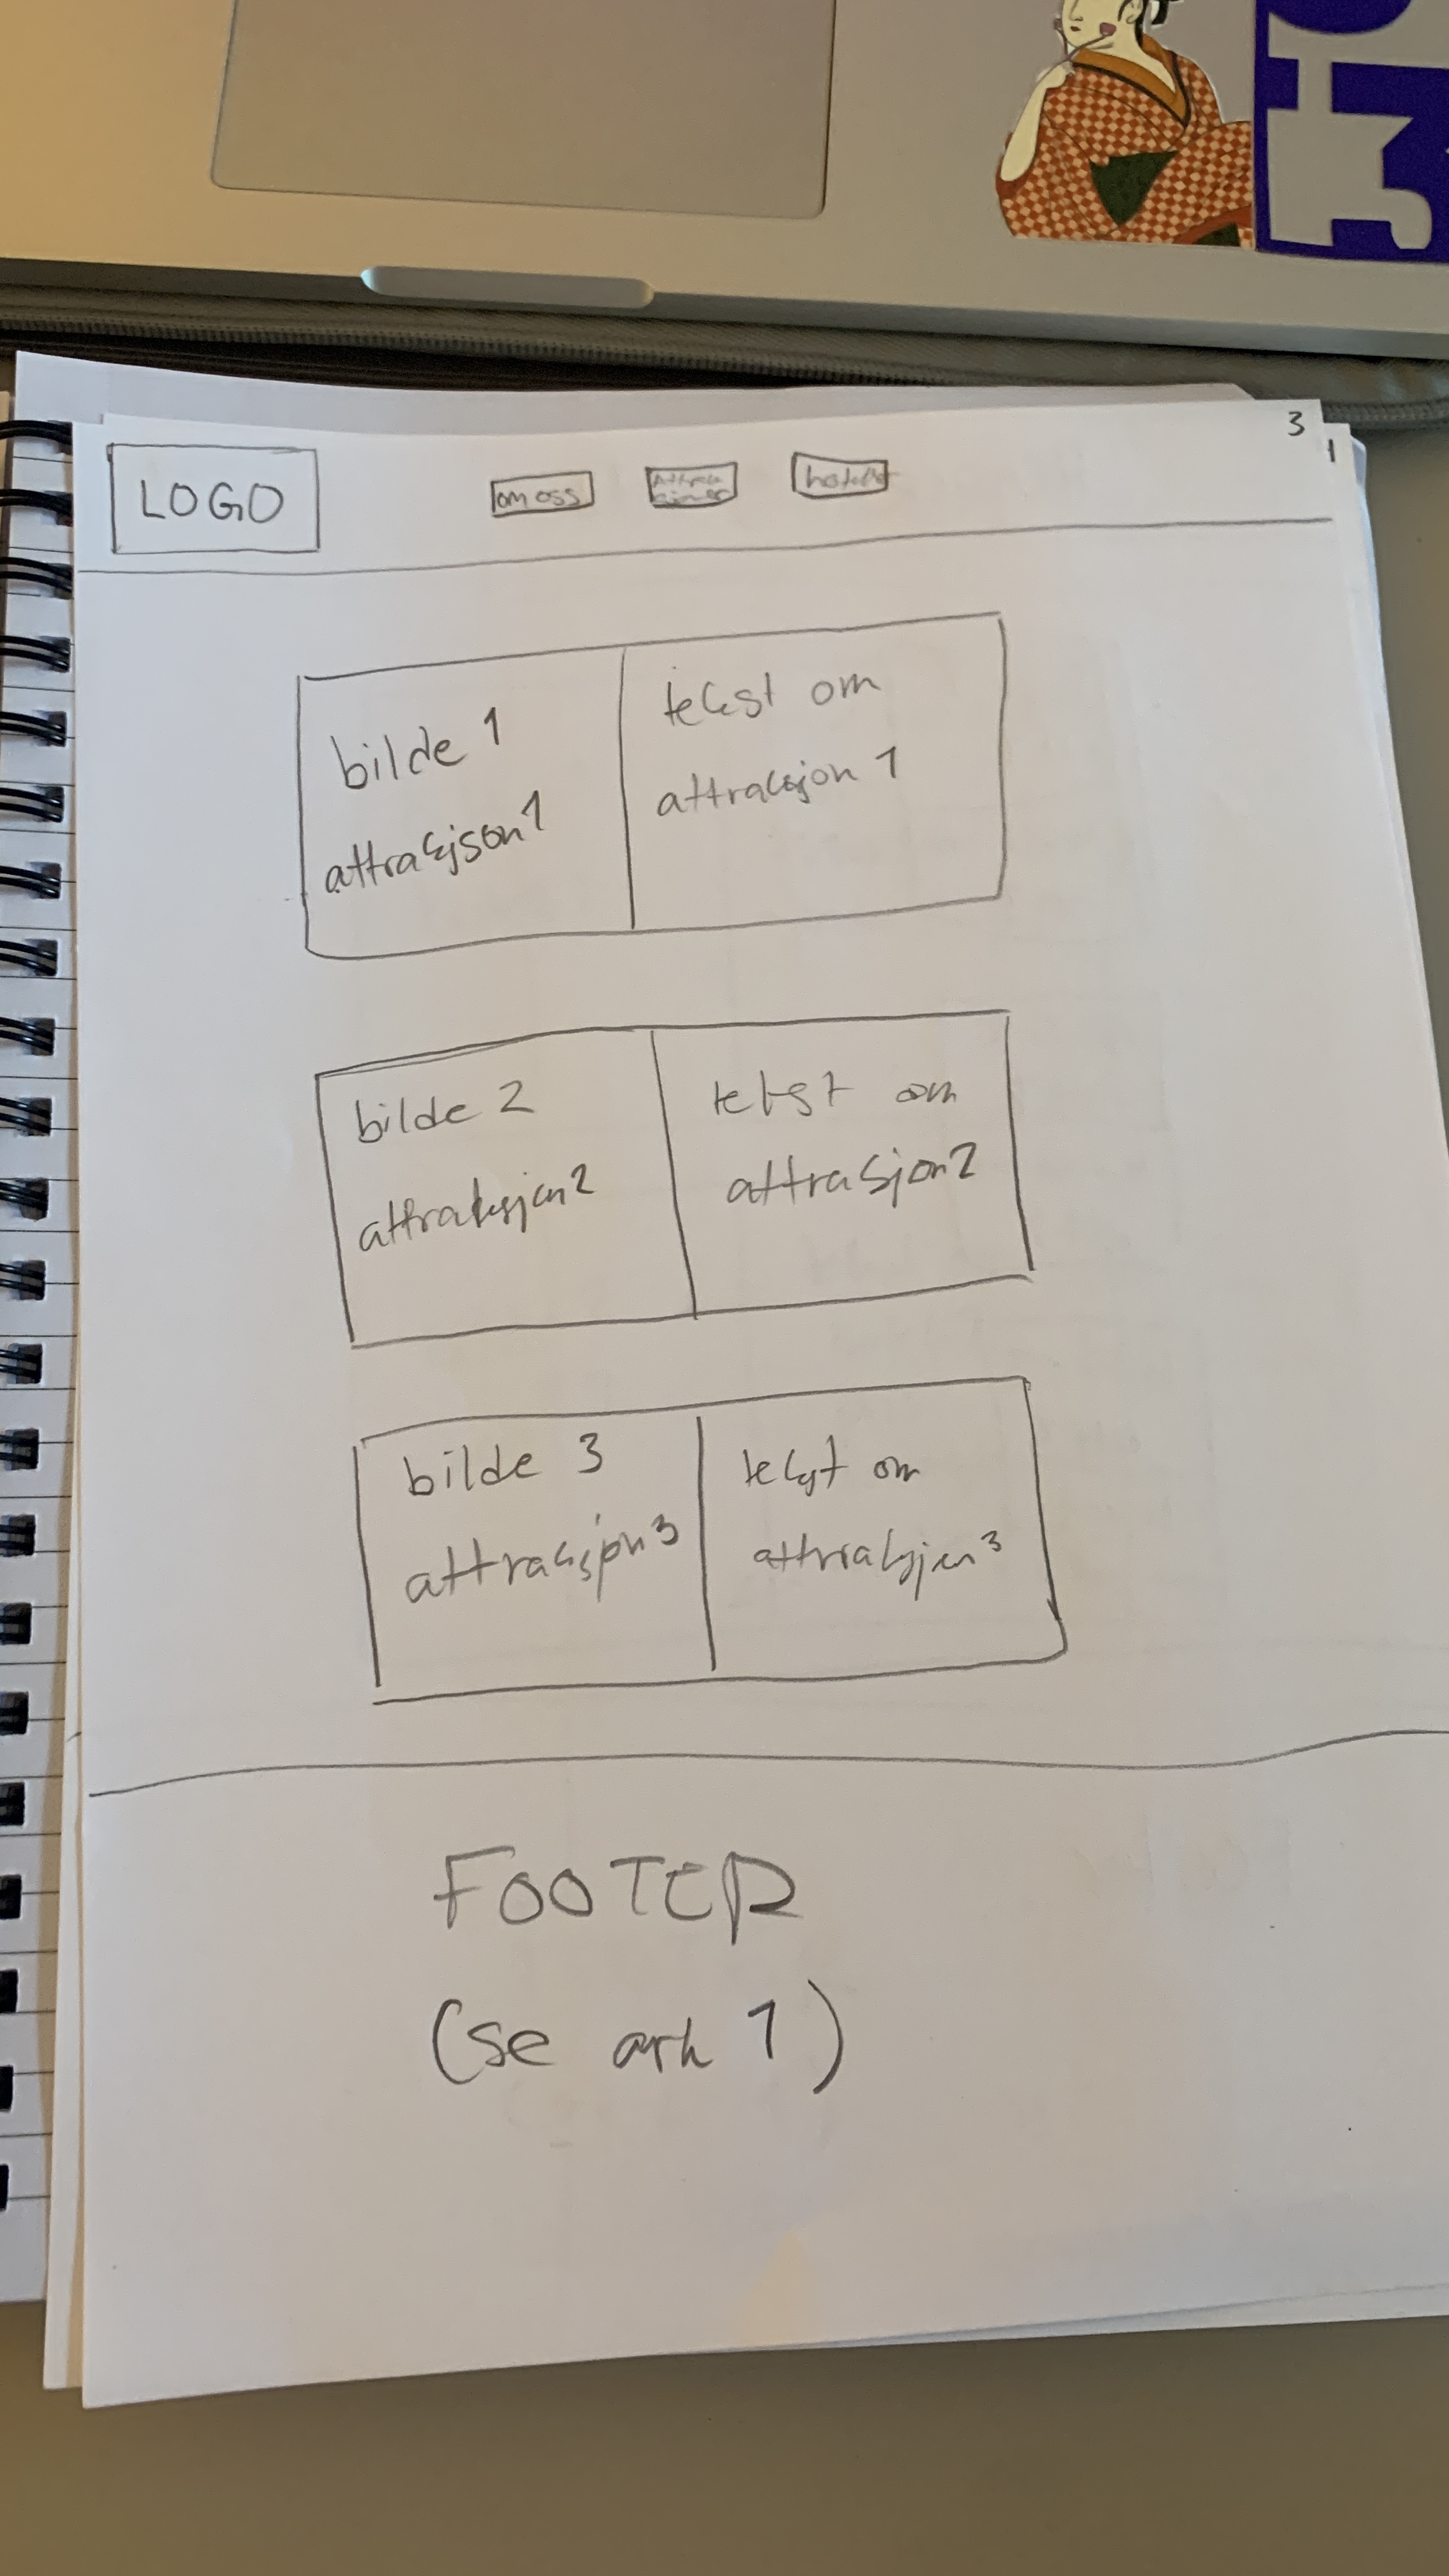 3
1
LOGO
om oss
hotell
bilde 1
attraksjson1
tekst om
attraksjon 1
bilde 2
attraksjon2
tekst om
attrasjon2
bilde 3
attraksjon3
tekst om
attraksjon3
FOOTER
(se ark 1)